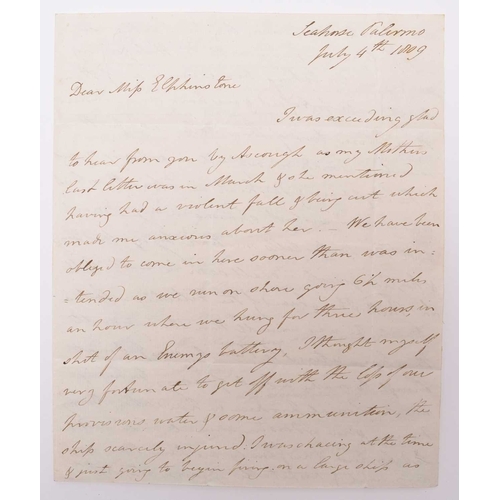 Seahorse Palermo
July 4th 1809
Dear Miss Elphinstone
I was exceeding glad
to hear from you by Ascough as my Mothers
last letter was in March & she mentioned
having had a violent fall & being cut which
made me anxious about her. – We have been
obliged to come in here sooner than was in=
=tended as we run on shore going 6½ miles
an hour where we hung for three hours in
shot of an Enemys battery, I thought myself
very fortunate to get off with the loss of our
provisions water & some ammunition, the
ship scarcely injured. I was chacing at the time
& just going to began firing on a large ship as